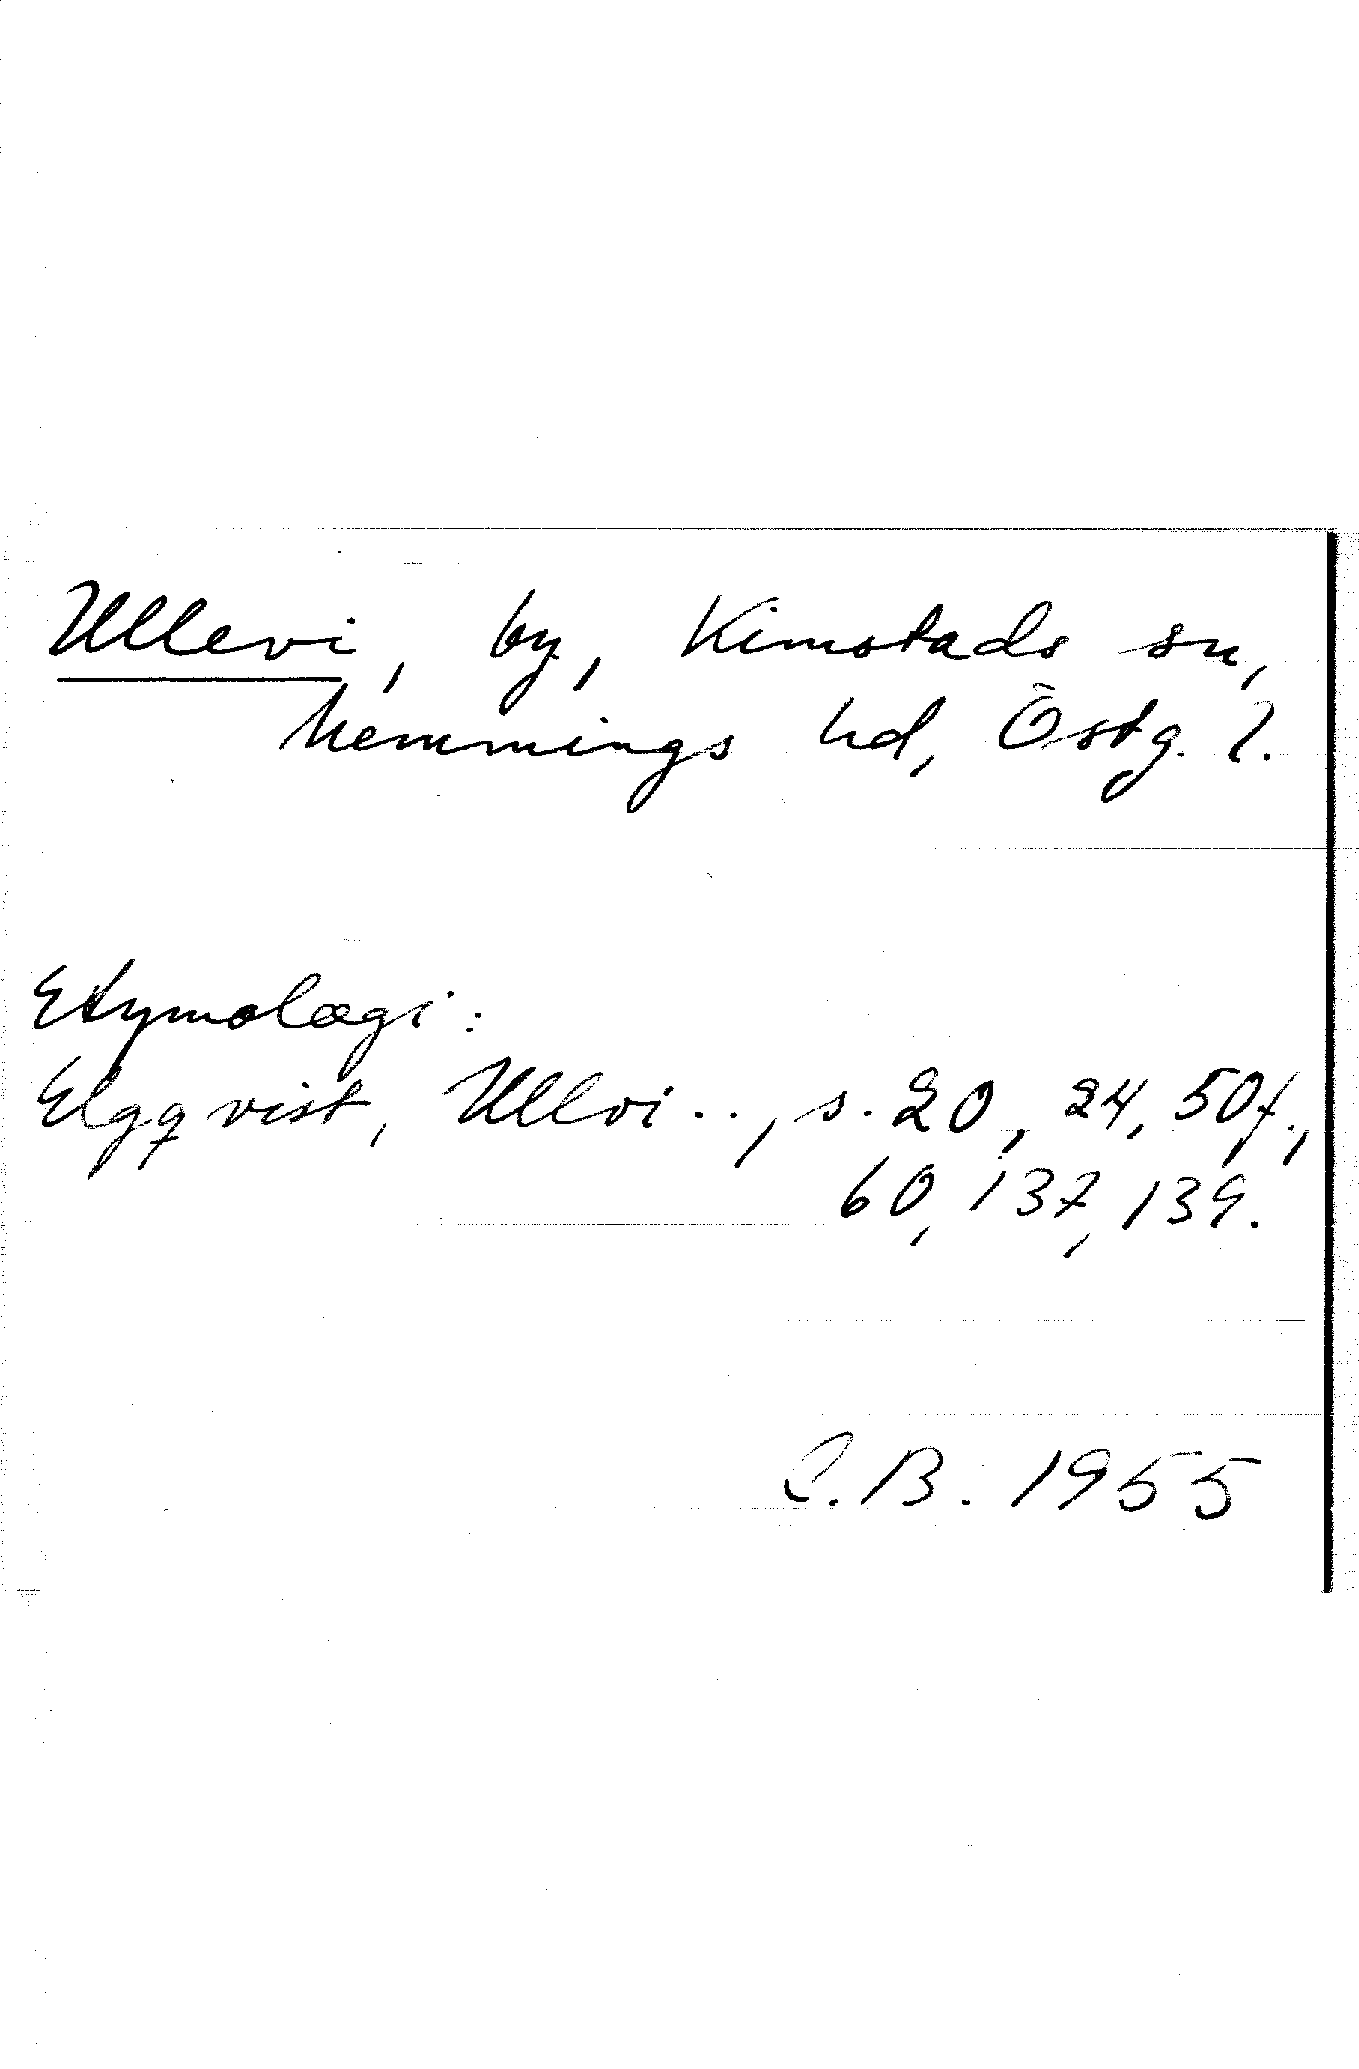 Ullevi, by, Kimstads sn,
Memmings hd, Östg. l.
Etymologi:
Elgqvist, Ullvi.., s. 20, 24, 50f.,
60, 137, 139.
C.B. 1955